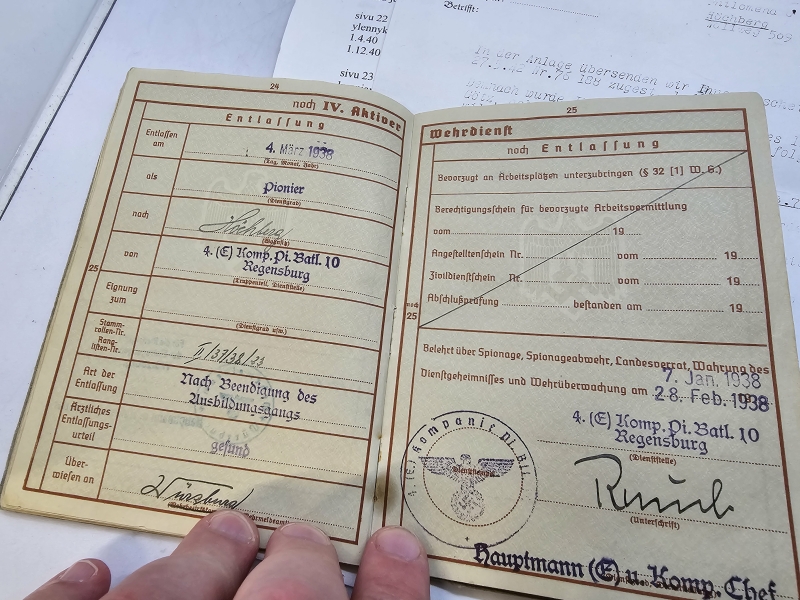 sivu 22
ylennyk
1.4.40
1.12.40
sivu 23
Betrifft:
Höchberg
509
In der Anlage übersenden wir
24
noch IV. Aktiver
Entlassung
Entlassen am
4. März 1938
(Tag, Monat, Jahr)
als
Pionier
(Dienstgrad)
nach
Höchberg
von
4. (E) Komp. Pi. Batl. 10
Regensburg
(Truppenteil, Dienststelle)
25
Eignung zum
(Dienstgrad usw.)
Stamm-
rollen-Nr.
Rang-
listen-Nr.
II/37/38/23
Art der
Entlassung
Nach Beendigung des
Ausbildungsgangs
Ärztliches
Entlassungs-
urteil
gesund
Über-
wiesen an
Würzburg
25
Wehrdienst
noch Entlassung
Bevorzugt an Arbeitsplätzen unterzubringen (§ 32 [1] W. G.)
Berechtigungsschein für bevorzugte Arbeitsvermittlung
vom 19
Angestelltenschein Nr. vom 19
Zivildienstschein Nr. vom 19
Abschlußprüfung bestanden am 19
noch
25
Belehrt über Spionage, Spionageabwehr, Landesverrat, Wahrung des
Dienstgeheimnisses und Wehrüberwachung am
7. Jan. 1938
28. Feb. 1938
4. (E) Komp. Pi. Batl. 10
Regensburg
(Dienststelle)
4. (E) Kompanie Pi. Btl.
(Dienststempel)
(Unterschrift)
Hauptmann (E) u. Komp. Chef